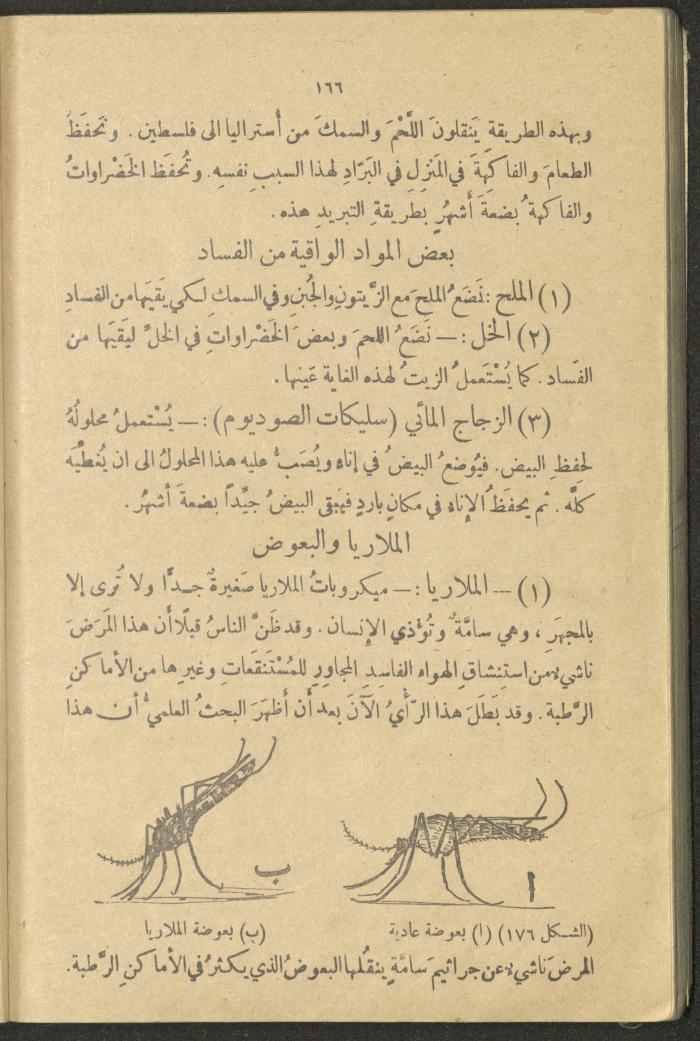 ١٦٦
وبهذه الطريقة يَنقلونَ اللَّحْمَ والسمكَ من أُستراليا الى فلسطين . وتَحفَظُ
الطعامَ والفاكهَةَ في المَنزِلِ في البَرّادِ لهذا السببِ نفسهِ. وتُحفَظ الخَضْراواتُ
والفاكهةُ بضعةَ أَشهُرٍ بطَريقةِ التبريدِ هذه .
بعض المواد الواقية من الفساد
(١) الملح : نَضَعُ الملحَ مع الزَّيتونِ والجُبْنِ وفي السمكِ لكي يَقيَها من الفسادِ
(٢) الخل : — نَضَعُ اللحمَ وبعضَ الخَضْراواتِ في الخلِّ ليَقيَها من
الفَساد . كما يُسْتَعملُ الزيتُ لهذه الغاية عَينها .
(٣) الزجاج المائي (سليكات الصوديوم) : — يُسْتعملُ محلولُهُ
لحفِظِ البيض . فيُوضعُ البيضُ في إناءٍ ويُصَبُّ عليه هذا المحلولُ الى ان يُغطيَّه
كلَّه . ثم يحفَظُ الإِناءُ في مكانٍ باردٍ فيبقى البيضُ جيِّداً بضعةَ أشهُر .
الملاريا والبعوض
(١) — الملاريا : — ميكروباتُ الملاريا صَغيرةٌ جداً ولا تُرى إلا
بالمجهَرِ ، وهي سامَّةٌ وتُؤْذي الإِنسان . وقد ظَنَّ الناسُ قبلًا أَن هذا المَرَضَ
ناشيءٌ من استنِشاقِ الهواء الفاسِدِ المجاوِرِ للمُسْتَنقَعاتِ وغيرِها من الأماكنِ
الرَّطبة . وقد بَطَلَ هذا الرّأْيُ الآنَ بعد أَن أَظهَرَ البحثُ العلميُّ أن هذا
ا
ب
(الشكل ١٧٦) (ا) بعوضة عادية
(ب) بعوضة الملاريا
المرضَ ناشيءٌ عن جراثيمَ سامَّةٍ ينقُلها البعوضُ الذي يكثرُ في الأماكنِ الرَّطبة.